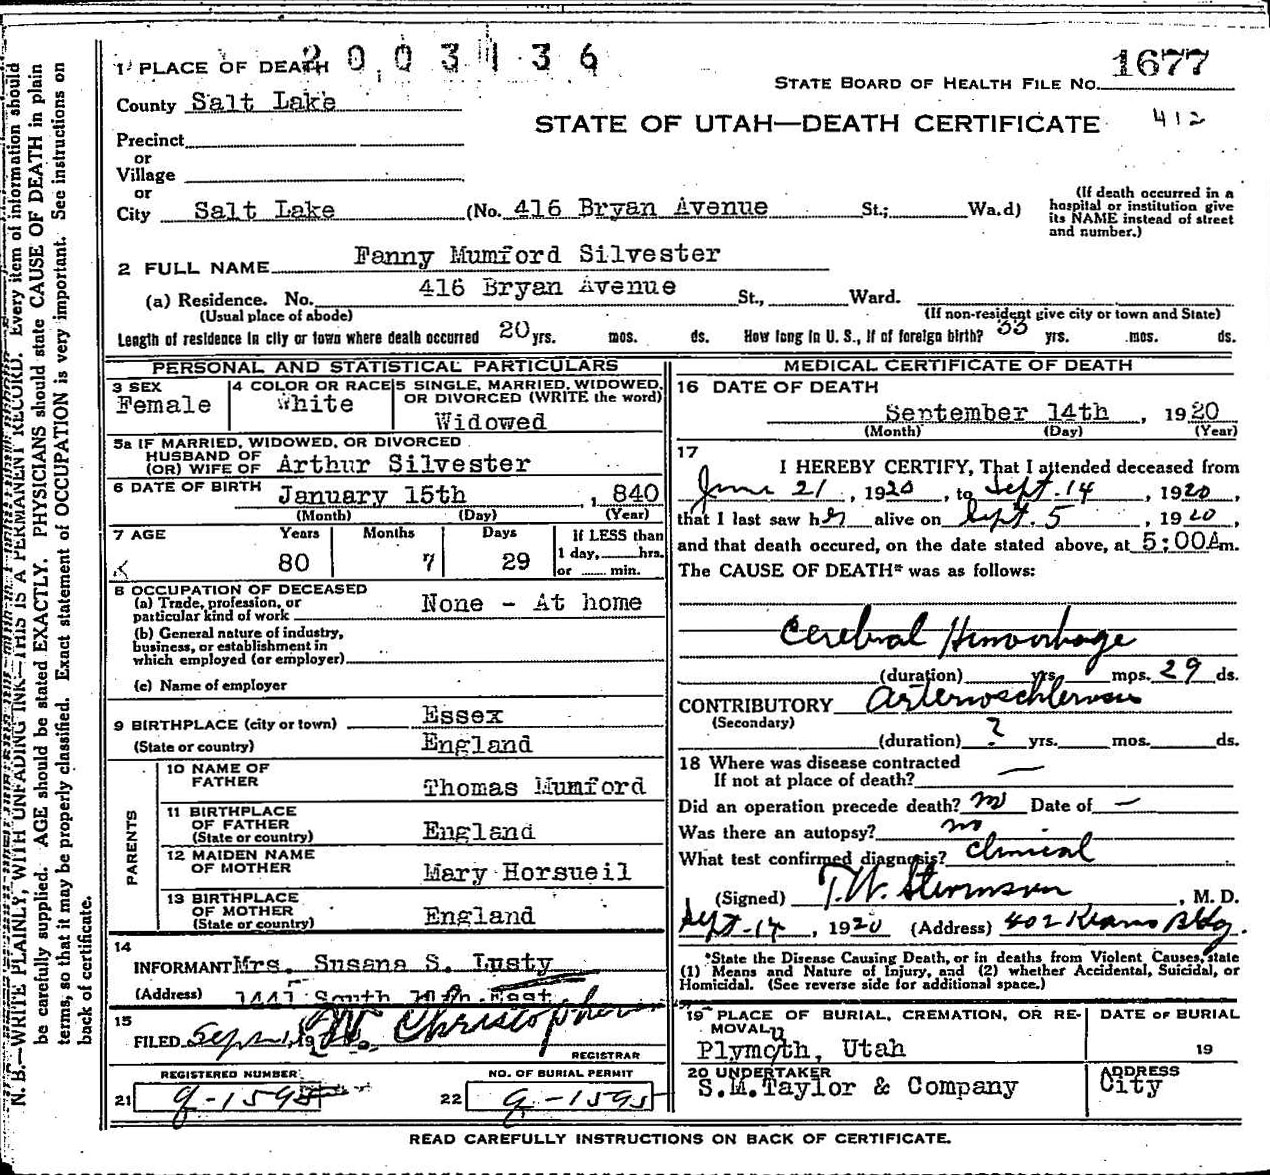 2003136
1 PLACE OF DEATH
STATE BOARD OF HEALTH FILE NO. 1677
County Salt Lake
STATE OF UTAH—DEATH CERTIFICATE 412
Precinct
or
Village
or
City Salt Lake (No. 416 Bryan Avenue St.; Wa.d)
(If death occurred in a
hospital or institution give
its NAME instead of street
and number.)
2 FULL NAME Fanny Mumford Silvester
(a) Residence. No. 416 Bryan Avenue St., Ward.
(Usual place of abode) (If non-resident give city or town and State)
Length of residence in city or town where death occurred 20 yrs. mos. ds. How long in U. S., if of foreign birth? yrs. mos. ds.
PERSONAL AND STATISTICAL PARTICULARS
3 SEX
Female
4 COLOR OR RACE
White
5 SINGLE, MARRIED, WIDOWED,
OR DIVORCED (WRITE the word)
Widowed
5a IF MARRIED, WIDOWED, OR DIVORCED
HUSBAND OF
(OR) WIFE OF Arthur Silvester
6 DATE OF BIRTH January 15th, 840
(Month) (Day) (Year)
7 AGE Years Months Days If LESS than
1 day, hrs.
80 7 29 or min.
8 OCCUPATION OF DECEASED
(a) Trade, profession, or
particular kind of work None - At home
(b) General nature of industry,
business, or establishment in
which employed (or employer)
(c) Name of employer
9 BIRTHPLACE (city or town) Essex
(State or country) England
PARENTS
10 NAME OF
FATHER Thomas Mumford
11 BIRTHPLACE
OF FATHER
(State or country) England
12 MAIDEN NAME
OF MOTHER Mary Horsueil
13 BIRTHPLACE
OF MOTHER
(State or country) England
14
INFORMANT Mrs. Susana S. Lusty
(Address) South East
15
FILED Christopherson
REGISTRAR
REGISTERED NUMBER
21 9-1595
NO. OF BURIAL PERMIT
22 9-1595
MEDICAL CERTIFICATE OF DEATH
16 DATE OF DEATH
September 14th, 1920
(Month) (Day) (Year)
17
I HEREBY CERTIFY, That I attended deceased from
June 21, 1920, to Sept. 14, 1920,
that I last saw her alive on Sept. 5, 1920,
and that death occured, on the date stated above, at 5:00Am.
The CAUSE OF DEATH* was as follows:
Cerebral Hemorrhage
(duration) yrs. mos. 29 ds.
CONTRIBUTORY Arterioschlerosis
(Secondary)
(duration) ? yrs. mos. ds.
18 Where was disease contracted
If not at place of death? —
Did an operation precede death? no Date of —
Was there an autopsy? no
What test confirmed diagnosis? Clinical
(Signed) T.W. Stevenson, M. D.
Sept-14, 1920 (Address) 402 Kearns Bldg.
*State the Disease Causing Death, or in deaths from Violent Causes, state
(1) Means and Nature of Injury, and (2) whether Accidental, Suicidal, or
Homicidal. (See reverse side for additional space.)
19 PLACE OF BURIAL, CREMATION, OR RE-
MOVAL
Plymoth, Utah
DATE OF BURIAL
19
20 UNDERTAKER
S.M.Taylor & Company
ADDRESS
City
READ CAREFULLY INSTRUCTIONS ON BACK OF CERTIFICATE.
N. B.—WRITE PLAINLY, WITH UNFADING INK—THIS IS A PERMANENT RECORD. Every item of information should
be carefully supplied. AGE should be stated EXACTLY. PHYSICIANS should state CAUSE OF DEATH in plain
terms, so that it may be properly classified. Exact statement of OCCUPATION is very important. See instructions on
back of certificate.